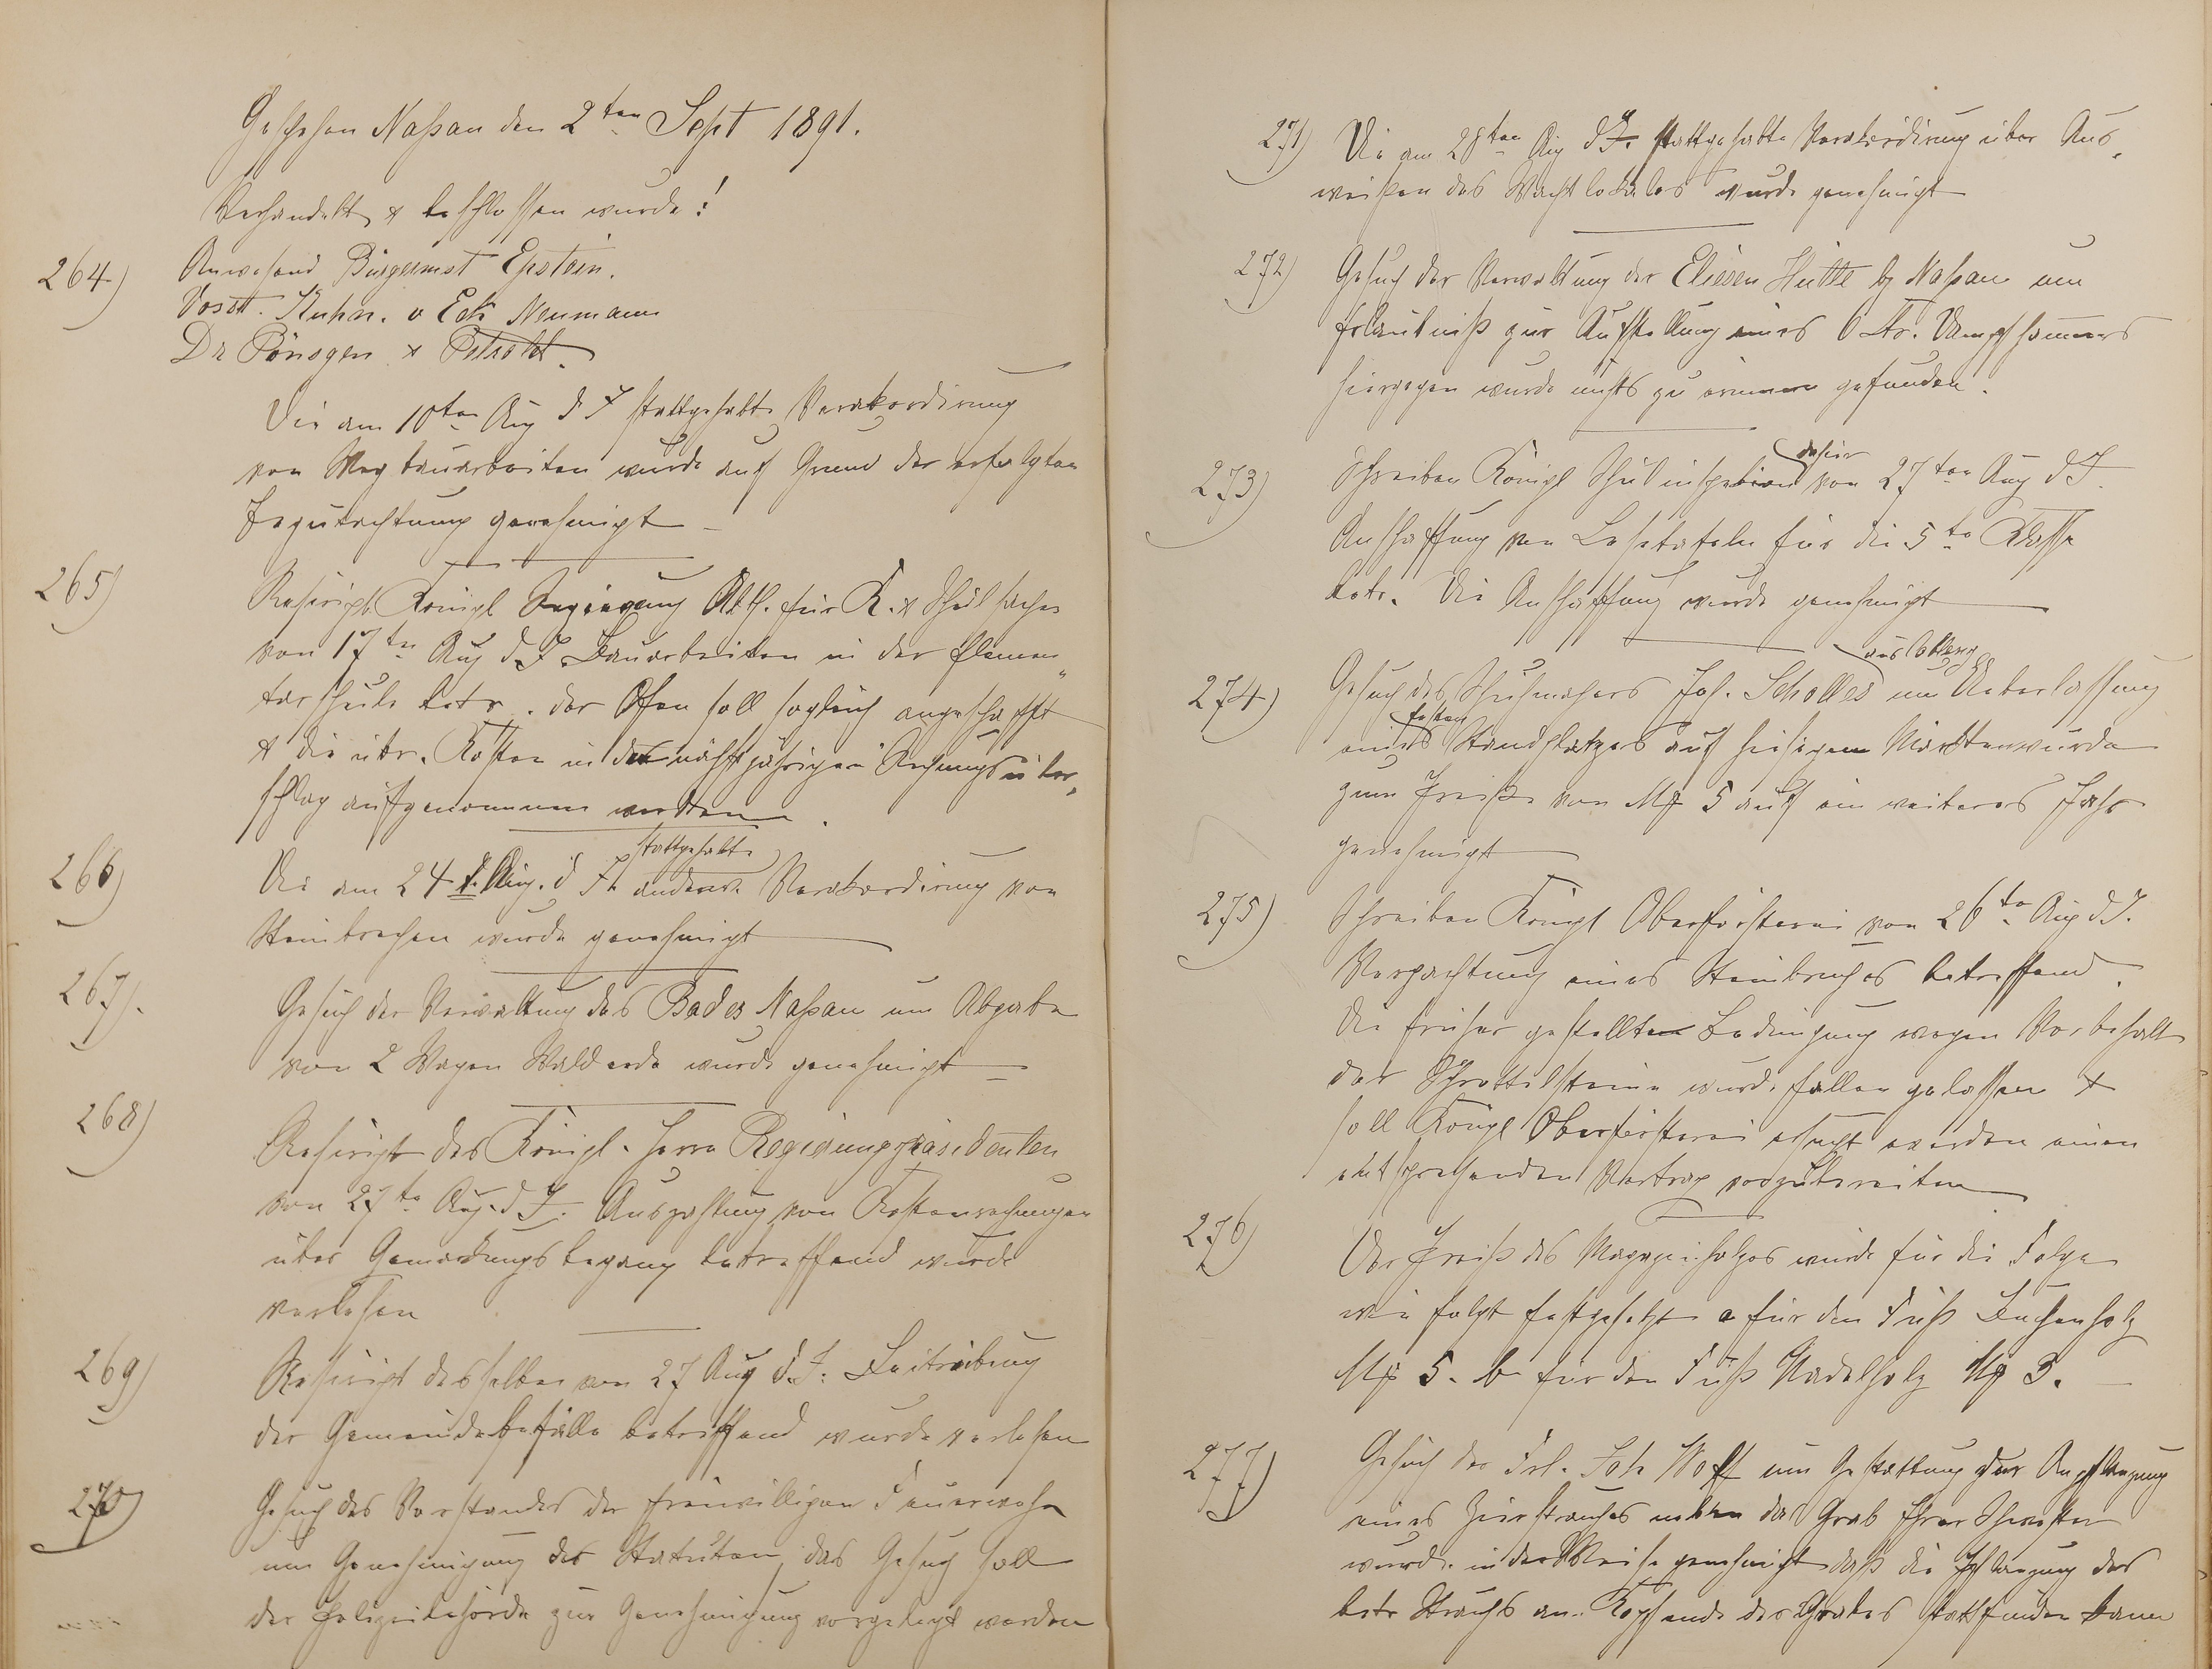 Geschehen Naßau den 2ten Sept 1891.
Verhandelt & beschlossen wurde!
264) Anwesend Bürgermst Epstein.
Vorst. Kuhn. v Eck Neumann
Dr Pönsgen & Petzold.
Die am 10ten Aug d J stattgehabte Verakkordirung
von Wegbauarbeiten wurde auf Grund der erfolgten
Begutachtung genehmigt
265) Rescript Königl Regierung Abth. für K. & Schulsachen
von 17ten Aug d. J. Bauarbeiten in der Elemen„
tarschule betr. der Ofen soll sogleich angeschafft
& die übr. Kosten in den nächstjährigen Rechnungsüber„
schlag aufgenommen werden.
266) Die am 24 t. Aug. d Js stattgehabte Verakkordirung von
Steinbrechen wurde genehmigt
267). Gesuch der Verwaltung des Bades Naßau um Abgabe
von 2 Wagen Walderde wurde genehmigt
268) Rescript des Königl. Herrn Regierungspräsidenten
von 27ten Aug. d J. Auszahlung von Kostenrechnungen
über Gemarkungsbegang betreffend wurde
verlesen
269) Rescript desselben von 27 Aug d. J. Beitreibung
der Gemeindegefälle betreffend wurde verlesen
270) Gesuch des Vorstandes der freiwilligen Feuerwehr
um Genehmigung der Statuten, das Gesuch soll
der Polizeibehörde zur Genehmigung vorgelegt werden
271) Die am 28ten Aug d J. stattgehabte Verakkordirung über Aus„
weißen des Wachtlokales wurde genehmigt
272) Gesuch der Verwaltung der Elisen Hütte bj Naßau um
Erlaubniß zur Aufstellung eines Ctr. Dampfhammers
hiergegen wurde nichts zu erinnern gefunden.
273) Schreiben Königl Schulinspection dahier von 27ten Aug d J.
Anschaffung von Lesetafeln für die 5te Klasse
betr. Die Anschaffung wurde genehmigt
274) Gesuch des Schuhmachers Joh. Scholles aus Coblenz um Ueberlassung
eines festen Standplatzes auf hiesigem Markten wurde
zum Preiße von Mg 5 auf ein weiteres Jahr
genehmigt
275) Schreiben Königl Oberförsterei von 26ten Aug d J.
Verpachtung eines Steinbruches betreffend.
Die früher gestellten Bedingung wegen Vorbehalt
der Schrottelsteine wurde fallen gelassen &
soll Königl Oberförsterei ersucht werden einen
entsprechenden Vertrag vorzubereiten
276) Der Preiß des Magazinholzes wurde für die Folge
wie folgt festgesetzt a für den Fuß Buchenholz
Mg 5. b für den Fuß Nadelholz Mg 3.
277) Gesuch der Frl. Soh Wolff um Gestattung zur Anpflanzung
eines Zierstrauches neben das Grab Ihrer Schwester
wurde in der Weise genehmigt daß die Pflanzung des
betr Strauchs am Kopfende des Grabes stattfinden kann